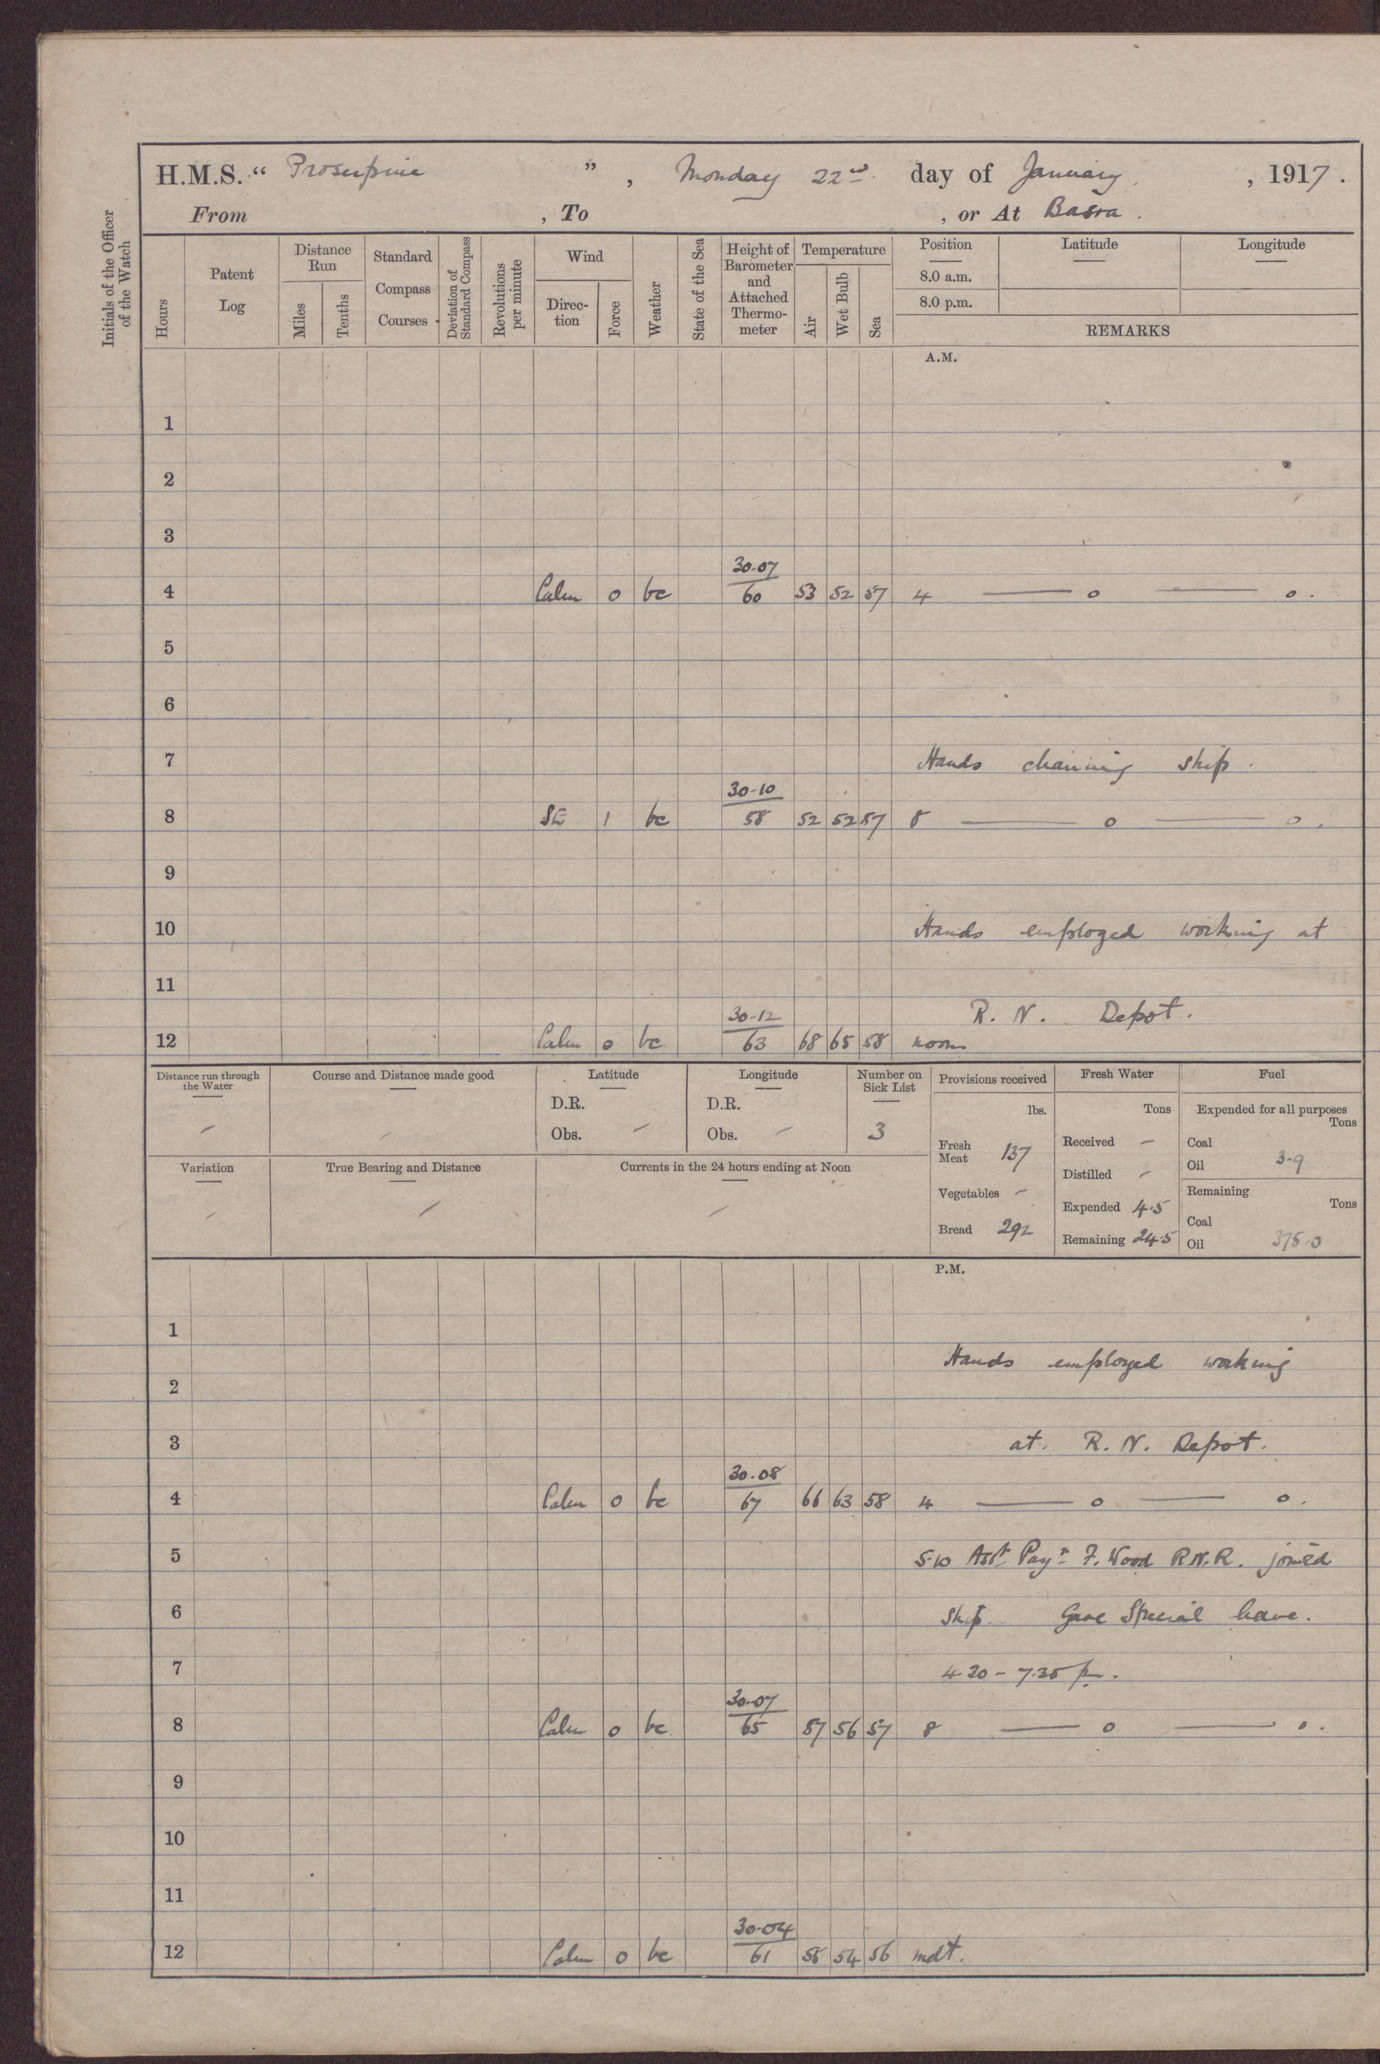 H.M.S. “ Proserpine ” , Monday 22nd day of January , 1917 .
From , To , or At Basra .
Initials of the Officer of the Watch
Hours
Patent Log
Distance Run
Miles
Tenths
Standard Compass Courses
Deviation of Standard Compass
Revolutions per minute
Wind
Direction
Force
Weather
State of the Sea
Height of Barometer and Attached Thermometer
Temperature
Air
Wet Bulb
Sea
Position
8.0 a.m.
8.0 p.m.
Latitude
Longitude
REMARKS
A.M.
1
2
3
30.07
4 Calm 0 bc 60 53 52 57 4 —— o —— o .
5
6
7 Hands cleaning ship .
30.10
8 SE 1 bc 58 52 52 57 8 —— o —— o .
9
10 Hands employed working at
11
R. N. Depot .
30.12
12 Calm 0 bc 63 68 65 58 noon
Distance run through the Water
–
Course and Distance made good
–
Latitude
D.R.
Obs. –
Longitude
D.R.
Obs. –
Number on Sick List
3
Provisions received
lbs.
Fresh Meat 137
Vegetables –
Bread 292
Fresh Water
Tons
Received –
Distilled –
Expended 4.5
Remaining 24.5
Fuel
Expended for all purposes
Tons
Coal
Oil 3.9
Remaining
Tons
Coal
Oil 375.0
Variation
–
True Bearing and Distance
–
Currents in the 24 hours ending at Noon
–
P.M.
1
Hands employed working
2
3 at R. N. Depot .
30.08
4 Calm 0 bc 67 66 63 58 4 —— o —— o .
5 5.10 Asst Payr F. Wood R.N.R. joined
6 ship. Gave Special leave .
7 4.30 – 7.35 p.m.
30.07
8 Calm 0 bc 65 57 56 57 8 —— o —— o .
9
10
11
30.04
12 Calm 0 bc 61 55 54 56 mdt .